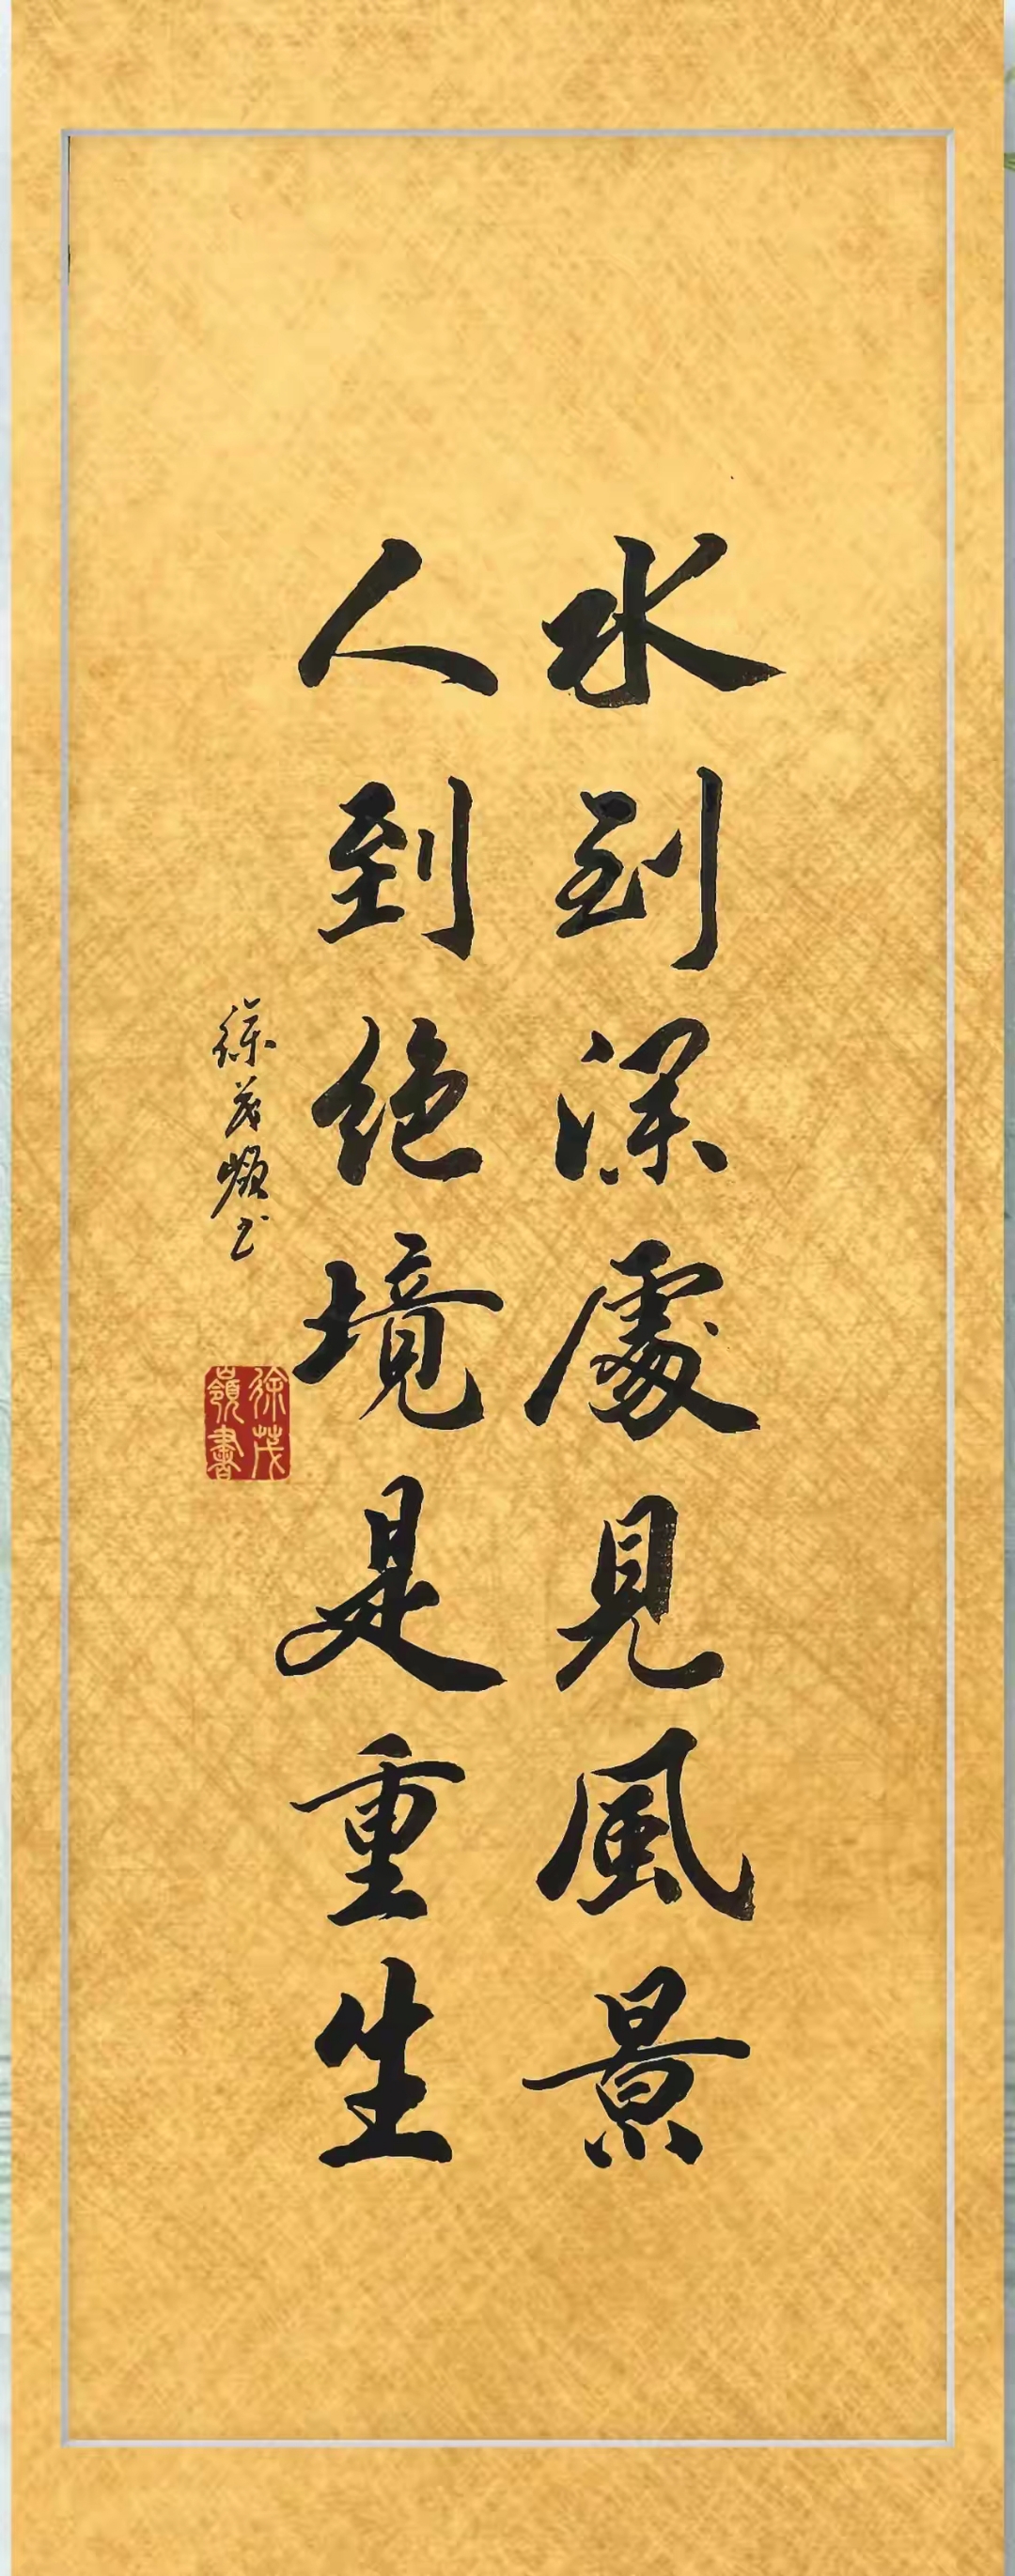 水到深處見風景
人到絕境是重生
徐茂嶺书
徐茂嶺書